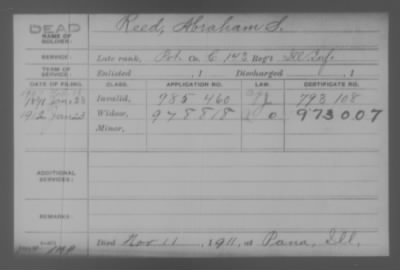 DEAD
NAME OF SOLDIER: Reed, Abraham S.
SERVICE: Late rank, Pvt. Co. C 143 Reg't Ill. Inf.
TERM OF SERVICE: Enlisted , 1 Discharged , 1
DATE OF FILING. CLASS. APPLICATION NO. LAW. CERTIFICATE NO.
1891 Invalid, 985 460 793 108
1912 Jan 23 Widow, 978818 973007
Minor,
ADDITIONAL SERVICES:
REMARKS:
Died Nov 11, 1911, at Pana, Ill.